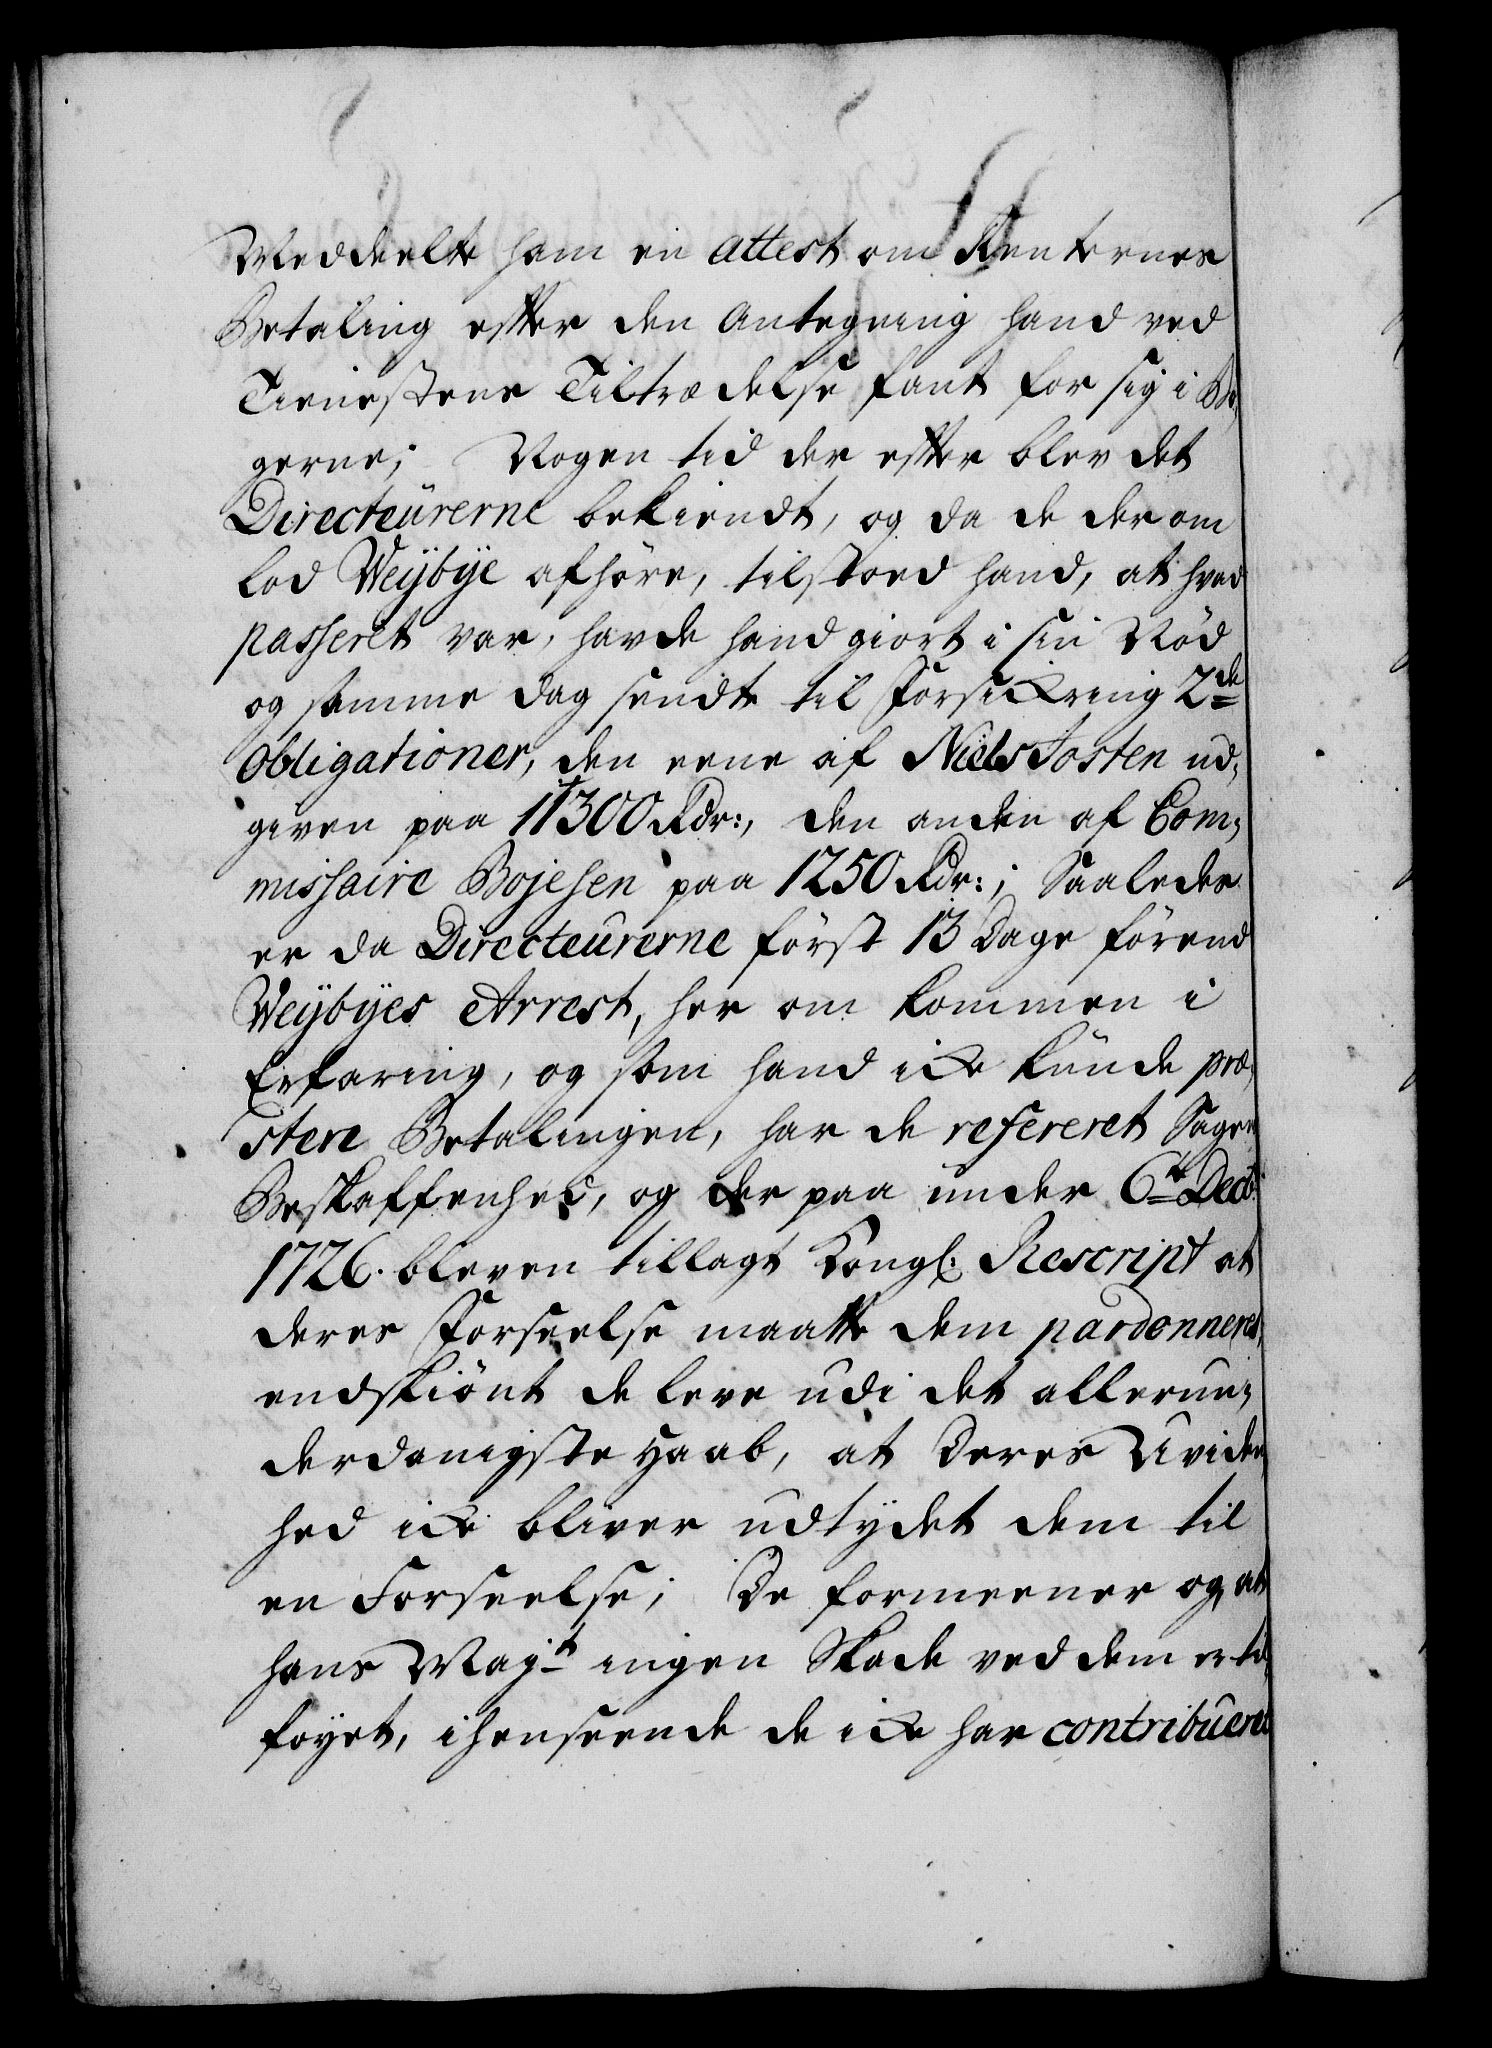 Meddeelte ham en attest om Renternes
Betaling efter den Antegning hand ved
Tienestens Tiltrædelse fant for sig i Bø,
gerne; Nogen tid der efter blev det
Directeurerne bekiendt, og da de der om
lod Weÿbÿe afhøre, tilstoed hand, at hvad
passeret var, havde hand giort i sin Nöd
og samme dag sendte til Forsickring 2de
obligationer, den eene af Niels Tosten ud,
given paa 11300 Rdr:, den anden af Com,
missaire Bojesen paa 1250 Rdr:; Saaledes
er da Directeurerne först 13 Dage förend
Weÿbÿes Arrest, her om kommen i
Erfaring, og som hand icke kunde præ,
stere Betalingen, har de refereret Sagens
Beskaffenhed, og der paa under 6te Decb:
1726. bleven tillagt Kongl: Rescript at
deres Forseelse maatte dem pardonneret,
endskiönt de leve udi det allerun,
derdanigste Haab, at Deres Uviden,
hed icke bliver udtydet dem til
en Forseelse; De formeener og, at
hans Mayt ingen Skade ved dem er til,
föyet, i henseende de icke har contribueret